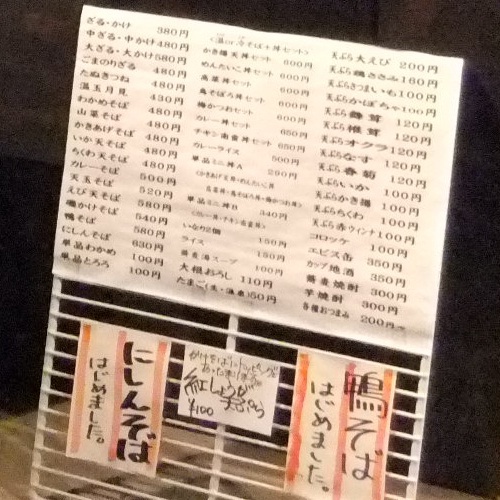 ざる・かけ 380円
中ざる・中かけ 480円
大ざる・大かけ 580円
ごまのりざる 480円
たぬきつね 480円
温玉月見 430円
わかめそば 480円
山菜そば 480円
かきあげそば 480円
いか天そば 480円
ちくわ天そば 480円
カレーそば 500円
天玉そば 520円
えび天そば 580円
鶏かけそば 540円
鴨そば 580円
にしんそば 630円
単品わかめ 100円
単品とろろ 100円
<温or冷そば+丼セット>
かき揚天丼セット 600円
めんたいこ丼セット 600円
高菜丼セット 600円
鳥そぼろ丼セット 600円
梅かつおセット 600円
カレー丼セット 650円
チキン南蛮丼セット 650円
カレーライス 500円
単品ミニ丼A 290円
単品ミニ丼B 340円
<カレー丼・チキン南蛮丼>
いなり2個
ライス 150円
蕎麦湯スープ 130円
大根おろし 110円
たまご(生・温泉) 50円
天ぷら大えび 200円
天ぷら鶏ささみ 160円
天ぷらさつまいも 100円
天ぷらかぼちゃ 100円
天ぷら舞茸 120円
天ぷら椎茸 120円
天ぷらオクラ 120円
天ぷらなす 120円
天ぷら春菊 120円
天ぷらいか 100円
天ぷらかき揚 100円
天ぷらちくわ 100円
天ぷら赤ウインナ 100円
コロッケ 100円
エビス缶 350円
カップ地酒 350円
蕎麦焼酎 300円
芋焼酎 300円
各種おつまみ 200円~
にしんそば
はじめました。
紅しょうが天
¥100
鴨そば
はじめました。